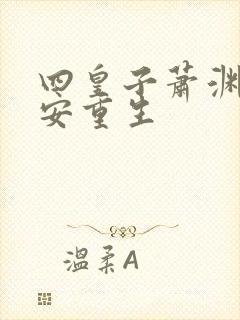 四皇子萧渊
安重生
温柔A